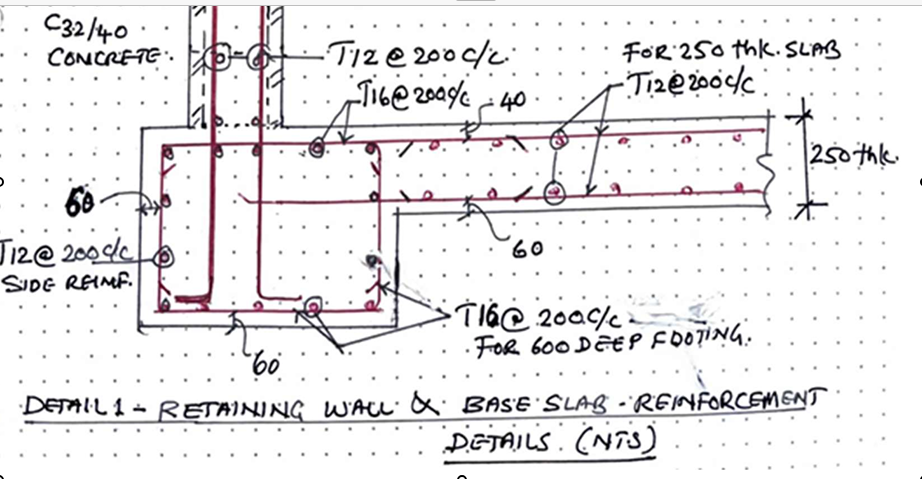 C32/40
CONCRETE.
T12 @ 200c/c.
T16@200c/c
40
FOR 250 thk. SLAB
T12@200c/c
250thk.
60
60
T12@ 200c/c
SIDE REINF.
60
T16@ 200c/c
FOR 600 DEEP FOOTING.
DETAIL 1 - RETAINING WALL & BASE SLAB - REINFORCEMENT
DETAILS. (NTS)